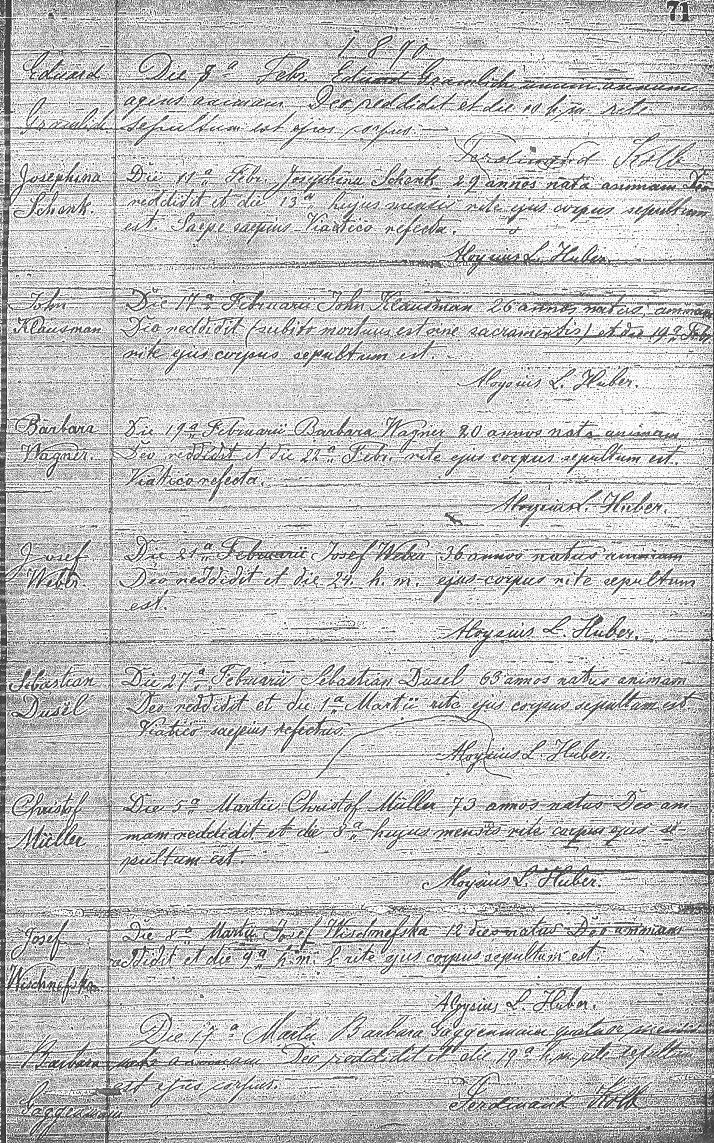 71
1890
Eduard Gramlich
Die 8ª Febr. Eduard Gramlich unum annum
agens animam Deo reddidit et die 10 h.m. rite
sepultum est ejus corpus.—
Ferdinand Kolb
Josephina Schenk.
Die 11ª Febr. Josephina Schenk 29 annos nata animam Deo
reddidit et die 13ª hujus mensis rite ejus corpus sepultum
est. Saepe saepius Viatico refecta.
Aloysius L. Huber.
John Klausman
Die 17ª Februarii John Klausman 26 annos natus animam
Deo reddidit (subito mortuus est sine sacramentis) et die 19ª Febr.
rite ejus corpus sepultum est.
Aloysius L. Huber.
Barbara Wagner.
Die 19ª Februarii Barbara Wagner 20 annos nata animam
Deo reddidit et die 22ª Febr. rite ejus corpus sepultum est.
Viatico refecta.
Aloysius L. Huber.
Josef Weber
Die 21ª Februarii Josef Weber 36 annos natus animam
Deo reddidit et die 24. h. m. ejus corpus rite sepultum
est.
Aloysius L. Huber.
Sebastian Dusel
Die 27ª Februarii Sebastian Dusel 63 annos natus animam
Deo reddidit et die 1ª Martii rite ejus corpus sepultum est
Viatico saepius refectus.
Aloysius L. Huber.
Christof Müller
Die 5ª Martii Christof Müller 73 annos natus Deo ani-
mam reddidit et die 8ª hujus mensis rite corpus ejus se-
pultum est.
Aloysius L. Huber.
Josef Wischnefska
Die 8ª Martii Josef Wischnefska 12 dies natus Deo animam
reddidit et die 9ª h. m. rite ejus corpus sepultum est.
Aloysius L. Huber.
Barbara Gaggermann
Die 17ª Martii Barbara Gaggermann quatuor mensis
nata animam Deo reddidit et die 19ª h.m. rite sepultum
est ejus corpus.
Ferdinand Kolb